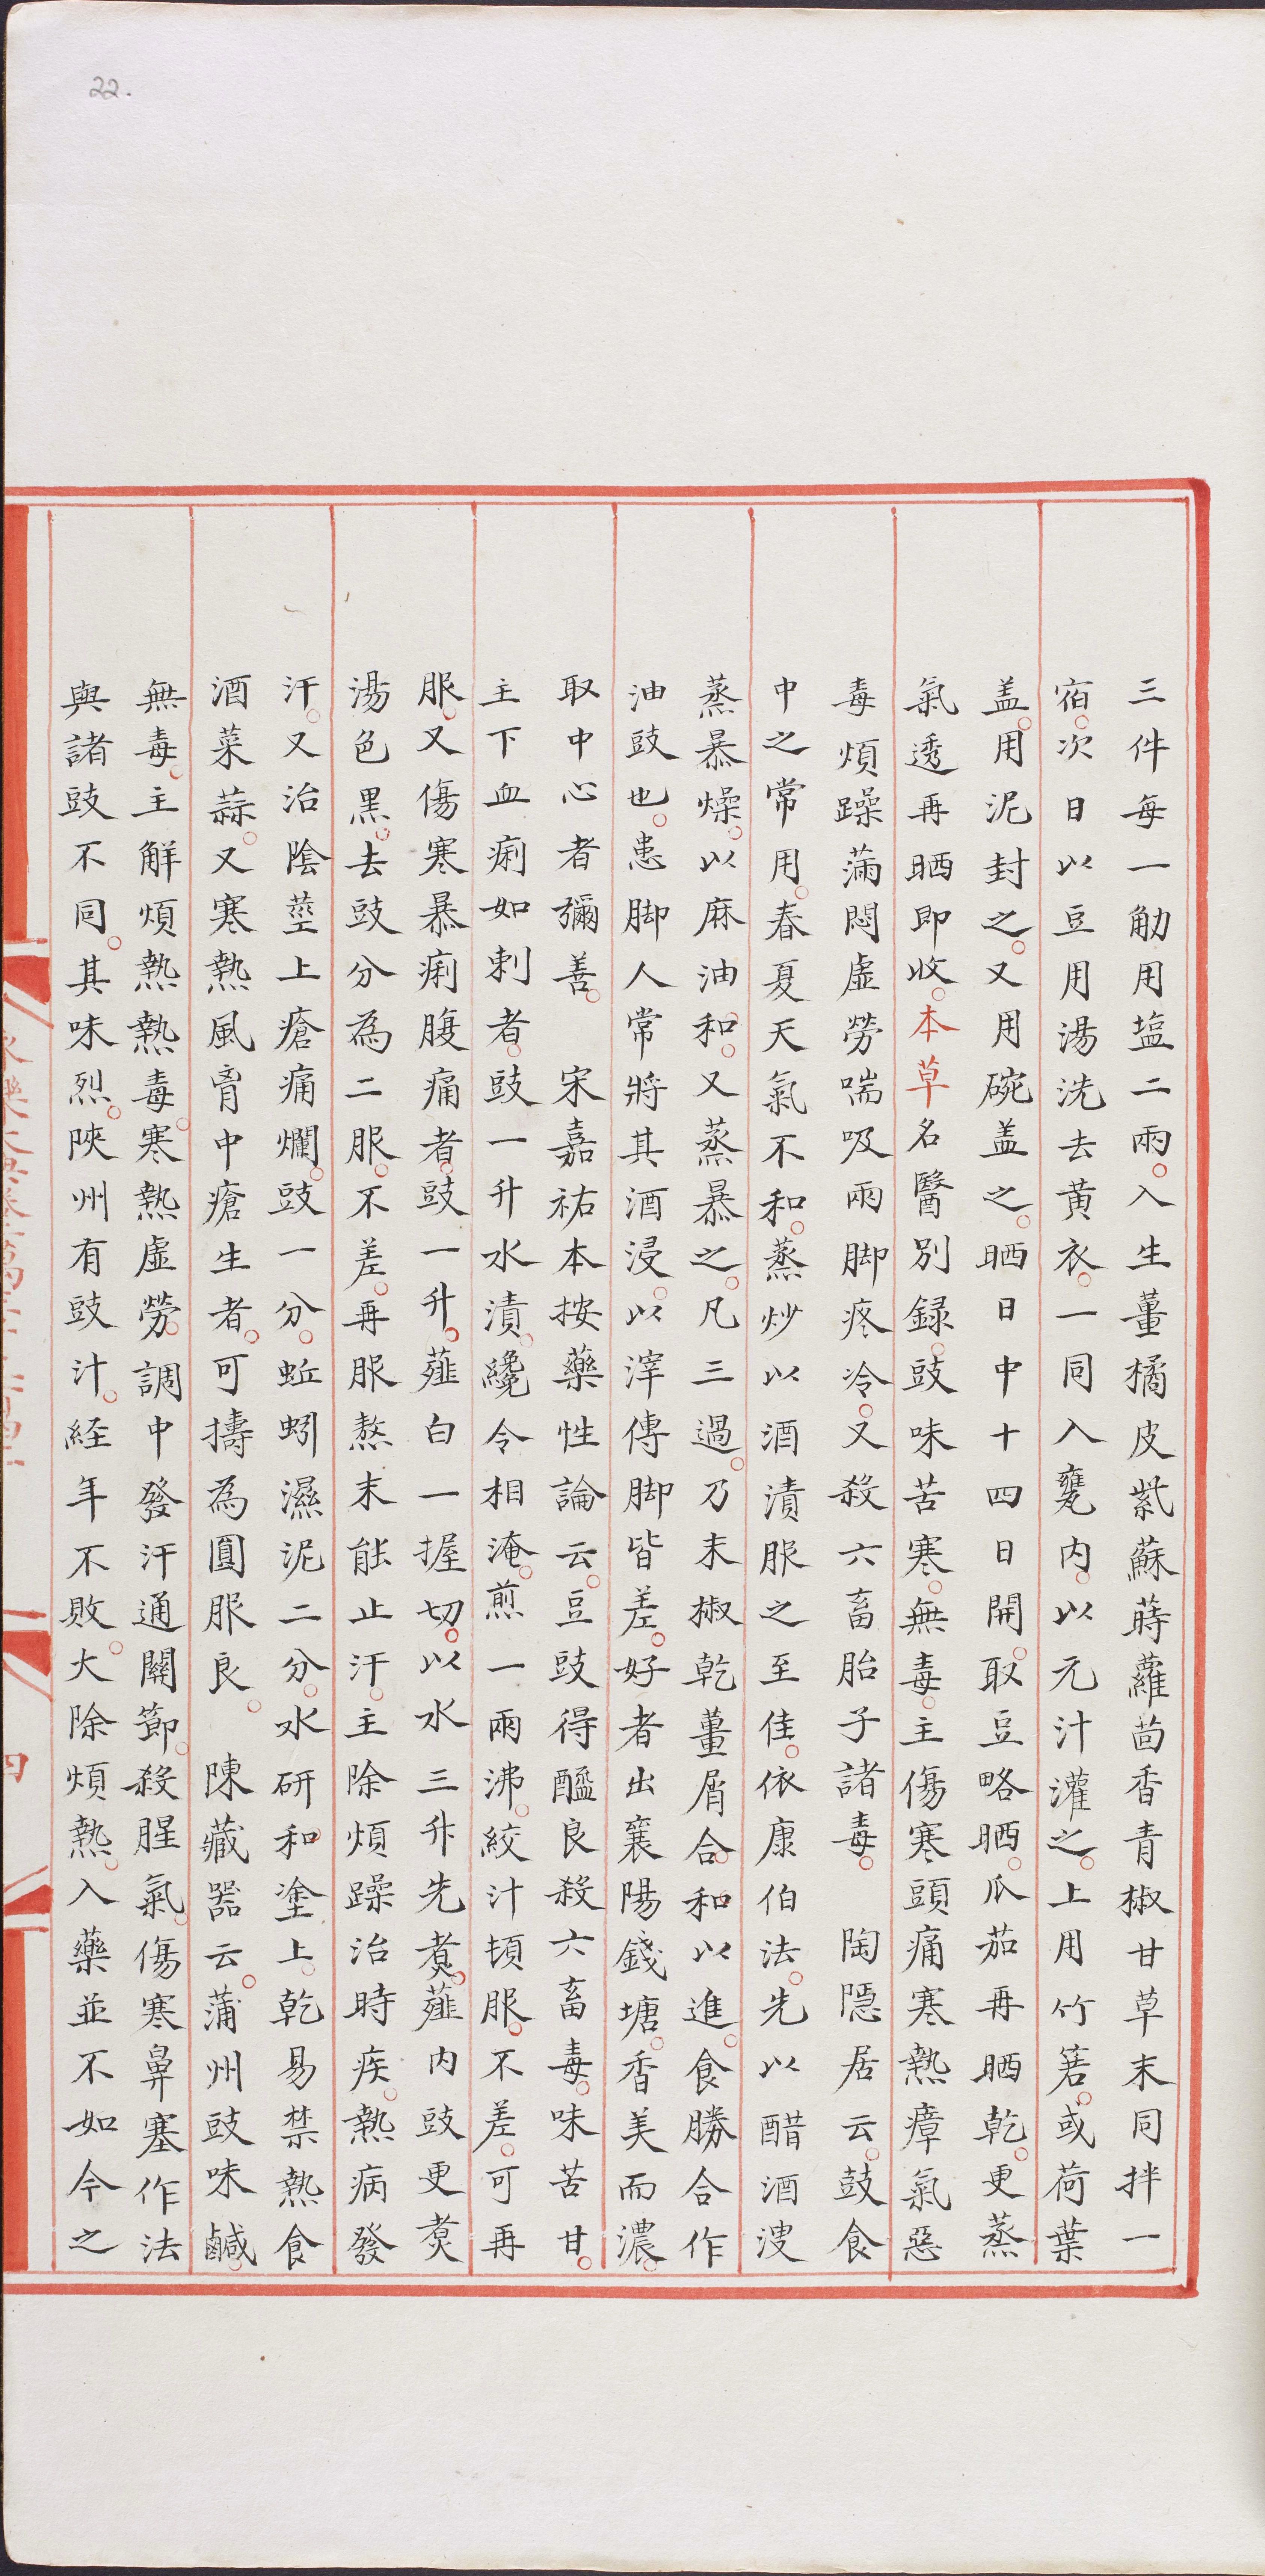 22.
三件每一觔用塩二兩入生薑橘皮紫蘇蒔蘿茴香青椒甘草末同拌一
宿次日以豆用湯洗去黃衣一同入甕內以元汁灌之上用竹箬或荷葉
盖用泥封之又用碗盖之晒日中十四日開取豆略晒瓜茄再晒乾更蒸
氣透再晒即收本草名醫別録豉味苦寒無毒主傷寒頭痛寒熱瘴氣惡
毒煩躁滿悶虛勞喘吸兩脚疼冷又殺六畜胎子諸毒 陶隱居云豉食
中之常用春夏天氣不和蒸炒以酒漬服之至佳依康伯法先以醋酒溲
蒸暴燥以麻油和又蒸暴之凡三過乃末椒乾薑屑合和以進食勝合作
油豉也患脚人常將其酒浸以滓傅脚皆差好者出襄陽錢塘香美而濃
取中心者彌善 宋嘉祐本按藥性論云豆豉得醯良殺六畜毒味苦甘
主下血痢如刺者豉一升水漬纔令相淹煎一兩沸絞汁頓服不差可再
服又傷寒暴痢腹痛者豉一升薤白一握切以水三升先煑薤內豉更煑
湯色黑去豉分為二服不差再服熬末能止汗主除煩躁治時疾熱病發
汗又治陰莖上瘡痛爛豉一分蚯蚓濕泥二分水研和塗上乾易禁熱食
酒菜蒜又寒熱風胷中瘡生者可擣為圓服良 陳藏器云蒲州豉味鹹
無毒主解煩熱熱毒寒熱虛勞調中發汗通關節殺腥氣傷寒鼻塞作法
與諸豉不同其味烈陝州有豉汁経年不敗大除煩熱入藥並不如今之